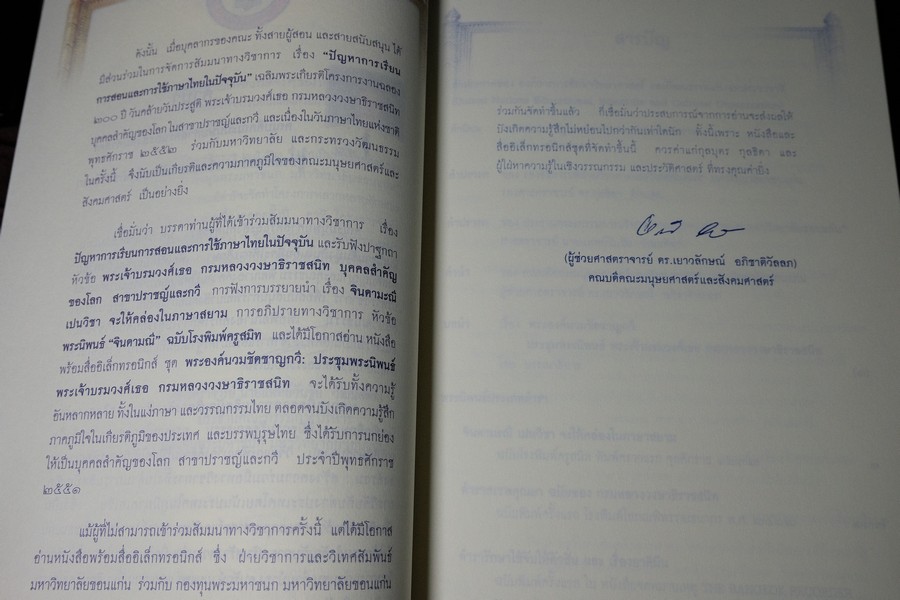 ดังนั้น เมื่อบุคลากรของคณะ ทั้งสายผู้สอน และสายสนับสนุน ได้
มีส่วนร่วมในการจัดการสัมมนาทางวิชาการ เรื่อง "ปัญหาการเรียน
การสอนและการใช้ภาษาไทยในปัจจุบัน" เฉลิมพระเกียรติโครงการงานฉลอง
๒๐๐ ปี วันคล้ายวันประสูติ พระเจ้าบรมวงศ์เธอ กรมหลวงวงษาธิราชสนิท
บุคคลสำคัญของโลก ในสาขาปราชญ์และกวี และเนื่องในวันภาษาไทยแห่งชาติ
พุทธศักราช ๒๕๕๒ ร่วมกับมหาวิทยาลัย และกระทรวงวัฒนธรรม
ในครั้งนี้ จึงนับเป็นเกียรติและความภาคภูมิใจของคณะมนุษยศาสตร์และ
สังคมศาสตร์ เป็นอย่างยิ่ง
เชื่อมั่นว่า บรรดาท่านผู้ที่ได้เข้าร่วมสัมมนาทางวิชาการ เรื่อง
ปัญหาการเรียนการสอนและการใช้ภาษาไทยในปัจจุบัน และรับฟังปาฐกถา
หัวข้อ พระเจ้าบรมวงศ์เธอ กรมหลวงวงษาธิราชสนิท บุคคลสำคัญ
ของโลก สาขาปราชญ์และกวี การฟังการบรรยายนำ เรื่อง จินดามะณี
เปนวิชา จะให้คล่องในภาษาสยาม การอภิปรายทางวิชาการ หัวข้อ
พระนิพนธ์ "จินดามณี" ฉบับโรงพิมพ์ครูสมิท และได้มีโอกาสอ่าน หนังสือ
พร้อมสื่ออิเล็กทรอนิกส์ ชุด พระองค์นวมชัดชาญกวี: ประชุมพระนิพนธ์
พระเจ้าบรมวงศ์เธอ กรมหลวงวงษาธิราชสนิท จะได้รับทั้งความรู้
อันหลากหลาย ทั้งในแง่ภาษา และวรรณกรรมไทย ตลอดจนบังเกิดความรู้สึก
ภาคภูมิใจในเกียรติภูมิของประเทศ และบรรพบุรุษไทย ซึ่งได้รับการยกย่อง
ให้เป็นบุคคลสำคัญของโลก สาขาปราชญ์และกวี ประจำปีพุทธศักราช
๒๕๕๑
แม้ผู้ที่ไม่สามารถเข้าร่วมสัมมนาทางวิชาการครั้งนี้ แต่ได้มีโอกาส
อ่านหนังสือพร้อมสื่ออิเล็กทรอนิกส์ ซึ่ง ฝ่ายวิชาการและวิเทศสัมพันธ์
มหาวิทยาลัยขอนแก่น ร่วมกับ กองทุนพระมหาชนก มหาวิทยาลัยขอนแก่น
ร่วมกันจัดทำขึ้นแล้ว ก็เชื่อมั่นว่าประสบการณ์จากการอ่านจะส่งผลให้
บังเกิดความรู้สึกไม่หย่อนไปกว่ากันเท่าใดนัก ทั้งนี้เพราะ หนังสือและ
สื่ออิเล็กทรอนิกส์ชุดที่จัดทำขึ้นนี้ ควรค่าแก่กุลบุตร กุลธิดา และ
ผู้ใฝ่หาความรู้ในเชิงวรรณกรรม และประวัติศาสตร์ ที่ทรงคุณค่ายิ่ง
(ผู้ช่วยศาสตราจารย์ ดร.เยาวลักษณ์ อภิชาติวัลลภ)
คณบดีคณะมนุษยศาสตร์และสังคมศาสตร์